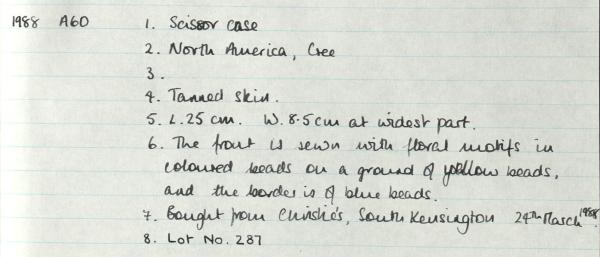 1988 A60 1. Scissor case
2. North America, Cree
3.
4. Tanned skin.
5. L.25 cm. W. 8.5cm at widest part.
6. The front is sewn with floral motifs in
coloured beads on a ground of yellow beads,
and the border is of blue beads.
7. Bought from Christie's, South Kensington 24th March 1988.
8. Lot No. 287